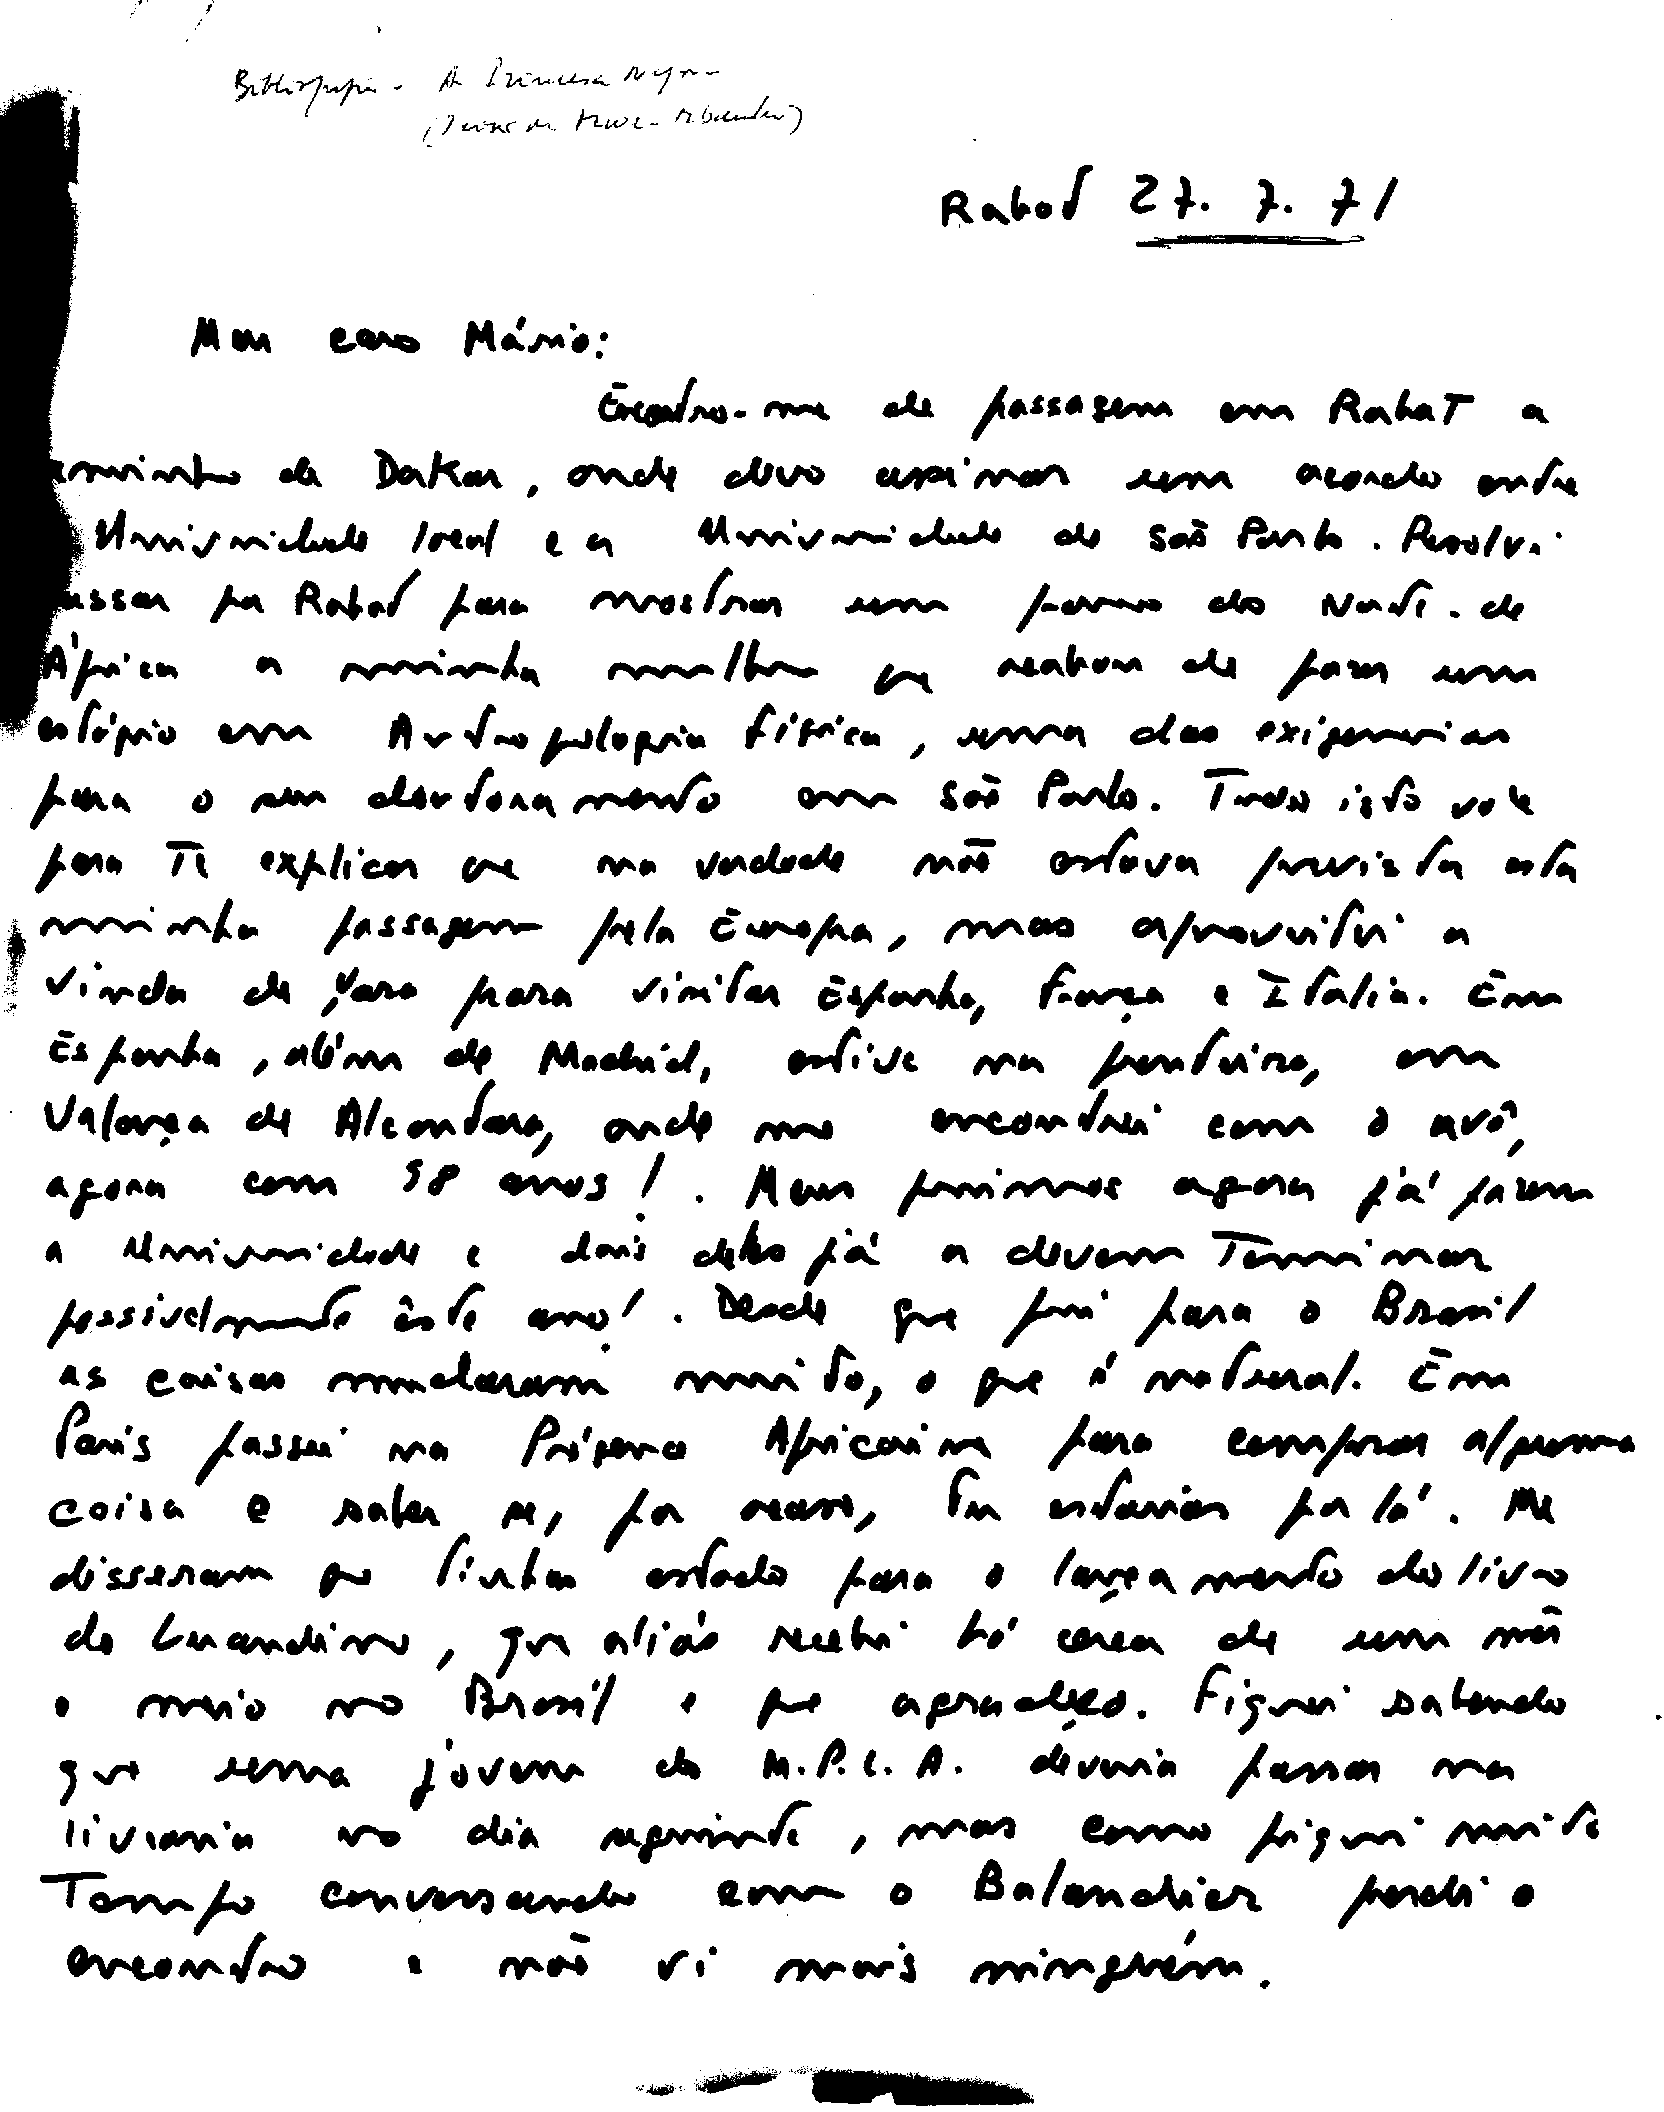 Bibliografia - A Princesa Negra
Rabat 27. 7. 71
Meu caro Mário:
Encontro-me de passagem em Rabat a
caminho de Dakar, onde devo assinar um acordo entre
Universidade local e a Universidade de São Paulo. Resolvi
passar por Rabat para mostrar um pouco do Norte de
África a minha mulher que acabou de fazer um
estágio em Antropologia Física, uma das exigencias
para o seu doutoramento em São Paulo. Tudo isto vale
para te explicar que na verdade não estava prevista esta
minha passagem pela Europa, mas aproveitei a
vinda de Yara para visitar Espanha, França e Itália. Em
Espanha, além de Madrid, estive na fronteira, em
Valença de Alcantara, onde me encontrei com o avô,
agora com 98 anos!. Meus primos agora já fazem
a Universidade e dois deles já a devem terminar
possivelmente êste ano!. Desde que fui para o Brasil
as coisas mudaram muito, o que é natural. Em
Paris passei na Présence Africaine para comprar alguma
coisa e saber se, por acaso, tu estarias por lá. Me
disseram que tinhas estado para o lançamento do livro
do Luandino, que aliás recebi há cêrca de um mês
e meio no Brasil e que agradeço. Fiquei sabendo
que uma jovem do M.P.L.A. deveria passar na
livraria no dia seguinte, mas como fiquei muito
Tempo conversando com o Balandier perdi o
encontro e não vi mais ninguém.